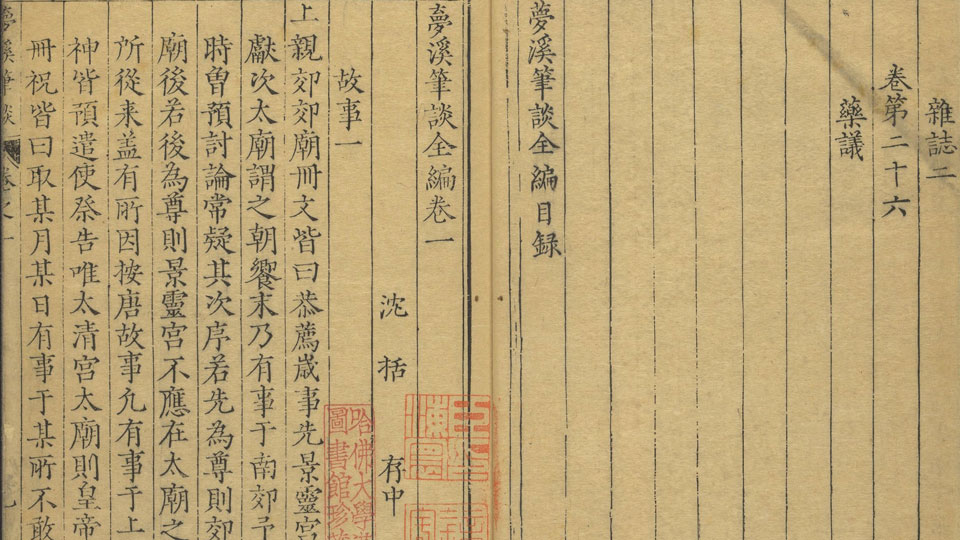 雜誌二
卷第二十六
藥議
夢溪筆談全編目録
夢溪筆談全編卷一
沈括存中
故事一
上親郊郊廟冊文皆曰恭薦歲事先景靈宮
獻次太廟謂之朝饗末乃有事于南郊予
時曾預討論常疑其次序若先為尊則郊
廟後若後為尊則景靈宮不應在太廟之
所從来盖有所因按唐故事凢有事于上
神皆預遣使祭告唯太清宮太廟則皇帝
冊祝皆曰取某月某日有事于某所不敢
夢溪筆談
卷之一
哈佛大學
圖書館珍